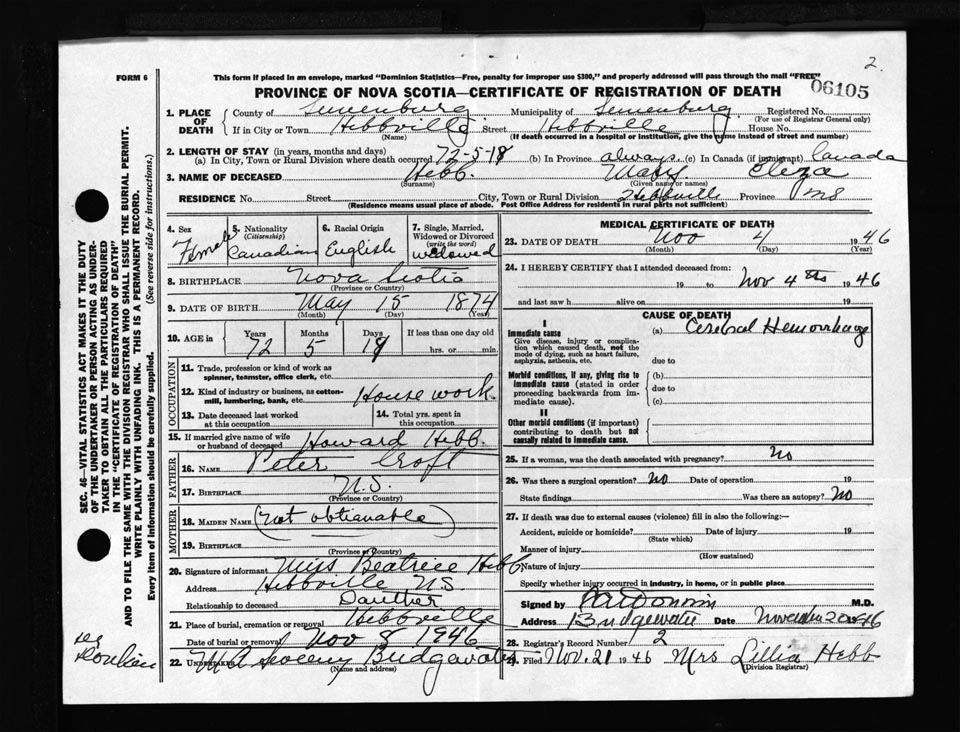 2.
FORM 6
This form if placed in an envelope, marked "Dominion Statistics—Free, penalty for improper use $300," and properly addressed will pass through the mail "FREE"
06105
PROVINCE OF NOVA SCOTIA—CERTIFICATE OF REGISTRATION OF DEATH
1. PLACE OF DEATH County of Lunenburg Municipality of Lunenburg Registered No.
(For use of Registrar General only)
If in City or Town Hebbville Street Hebbville House No.
(Name) (If death occurred in a hospital or institution, give the name instead of street and number)
2. LENGTH OF STAY (in years, months and days)
(a) In City, Town or Rural Division where death occurred 72-5-18 (b) In Province always (c) In Canada (if immigrant) Canada
3. NAME OF DECEASED Hebb Mary Eliza
(Surname) (Given name or names)
RESIDENCE No. Street City, Town or Rural Division Hebbville Province NS
(Residence means usual place of abode. Post Office Address for residents in rural parts not sufficient)
4. Sex 5. Nationality (Citizenship) 6. Racial Origin 7. Single, Married, Widowed or Divorced (write the word)
Female Canadian English widowed
8. BIRTHPLACE Nova Scotia
(Province or Country)
9. DATE OF BIRTH May 15 1874
(Month) (Day) (Year)
10. AGE in Years Months Days If less than one day old
72 5 18 hrs. or min.
OCCUPATION
11. Trade, profession or kind of work as spinner, teamster, office clerk, etc.
12. Kind of industry or business, as cotton-mill, lumbering, bank, etc. House work.
13. Date deceased last worked at this occupation 14. Total yrs. spent in this occupation
15. If married give name of wife or husband of deceased Howard Hebb.
FATHER
16. NAME Peter Croft
17. BIRTHPLACE N.S.
(Province or Country)
MOTHER
18. MAIDEN NAME (not obtianable)
19. BIRTHPLACE
(Province or Country)
20. Signature of informant Miss Beatrice Hebb
Address Hebbville N.S.
Relationship to deceased Dauther
21. Place of burial, cremation or removal Hebbville
Date of burial or removal Nov 8 1946
22. UNDERTAKER Bridgewater
(Name and address)
MEDICAL CERTIFICATE OF DEATH
23. DATE OF DEATH Nov 4 1946
(Month) (Day) (Year)
24. I HEREBY CERTIFY that I attended deceased from:
19 to Nov 4th 1946
and last saw h alive on 19
CAUSE OF DEATH
I
Immediate cause (a) Cerebral Hemorrhage
Give disease, injury or complication which caused death, not the mode of dying, such as heart failure, asphyxia, asthenia, etc.
due to
Morbid conditions, if any, giving rise to immediate cause (stated in order proceeding backwards from immediate cause).
(b)
due to
(c)
II
Other morbid conditions (if important) contributing to death but not causally related to immediate cause.
25. If a woman, was the death associated with pregnancy? No
26. Was there a surgical operation? No Date of operation 19
State findings Was there an autopsy? No
27. If death was due to external causes (violence) fill in also the following:—
Accident, suicide or homicide? Date of injury 19
(State which)
Manner of injury
(How sustained)
Nature of injury
Specify whether injury occurred in industry, in home, or in public place
Signed by M.D.
Address Bridgewater Date November 20 1946
28. Registrar's Record Number 2
29. Filed Nov. 21 1946 Mrs Lillia Hebb
(Division Registrar)
SEC. 46—VITAL STATISTICS ACT MAKES IT THE DUTY
OF THE UNDERTAKER OR PERSON ACTING AS UNDER-
TAKER TO OBTAIN ALL THE PARTICULARS REQUIRED
IN THE "CERTIFICATE OF REGISTRATION OF DEATH"
AND TO FILE THE SAME WITH THE DIVISION REGISTRAR WHO SHALL ISSUE THE BURIAL PERMIT.
WRITE PLAINLY WITH UNFADING INK. THIS IS A PERMANENT RECORD.
Every item of information should be carefully supplied. (See reverse side for instructions.)